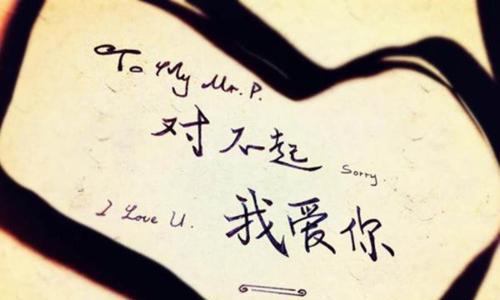 To My Mr. P.
对不起 Sorry
I Love U. 我爱你